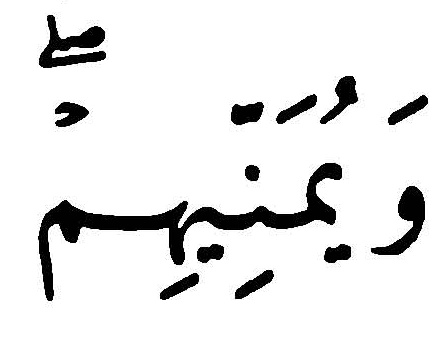 وَيُمَنِّيهِمْ ؕ